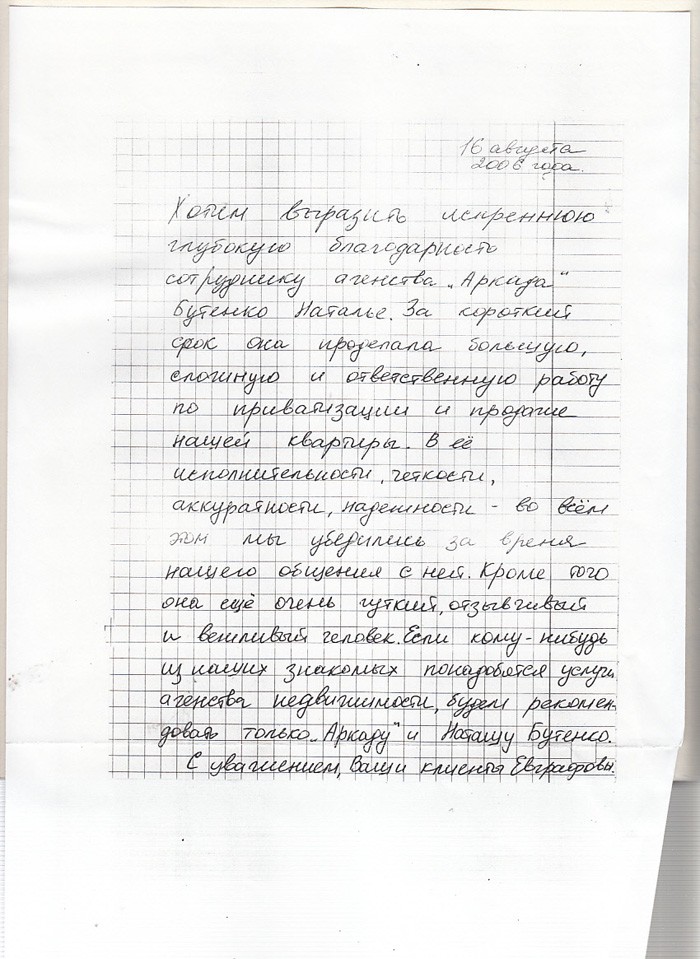 16 августа
2006 года.
Хотим выразить искреннюю
глубокую благодарность
сотруднику агенства „Аркада"
Бутенко Наталье. За короткий
срок она проделала большую,
сложную и ответственную работу
по приватизации и продаже
нашей квартиры. В её
исполнительности, четкости,
аккуратности, надежности - во всём
этом мы убедились за время
нашего общения с ней. Кроме того
она ещё очень чуткий, отзывчивый
и вежливый человек. Если кому-нибудь
из наших знакомых понадобятся услуги
агенства недвижимости, будем рекомен-
довать только „Аркаду" и Наташу Бутенко.
С уважением, Ваши клиенты Евграфовы.